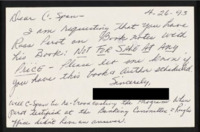 Dear C-Span - 4-26-93
I am requesting that you have
Ross Perot on Book Notes with
his Book: NOT FOR SALE At Any
PRICE - Please let me know if
you have this books Author scheduled.
Sincerely,
Will C-Span be Re-broadcasting the Program Where
Perot testified at the Banking Committee &
then didn't him an answer.